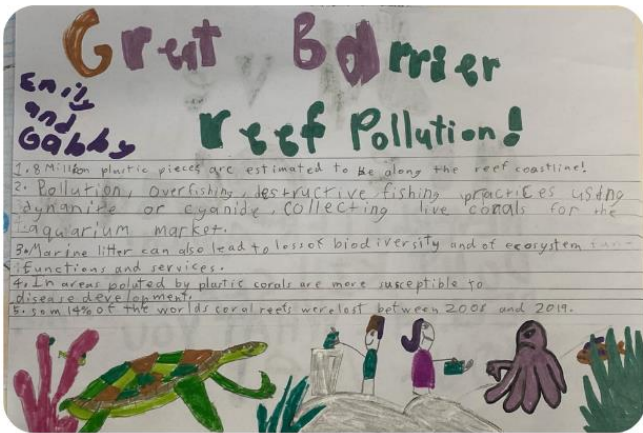 Great Barrier
Emily
and
Gabby
reef Pollution!
1. 8 Million plastic pieces are estimated to be along the reef coastline!
2. Pollution, overfishing, destructive fishing practices using
dynanite or cyanide, collecting live corals for the
aquarium market.
3. Marine litter can also lead to loss of biodiversity and of ecosystem
functions and services.
4. In areas poluted by plastic corals are more susceptible to
disease development.
5. som 14% of the worlds coral reefs were lost between 2008 and 2019.